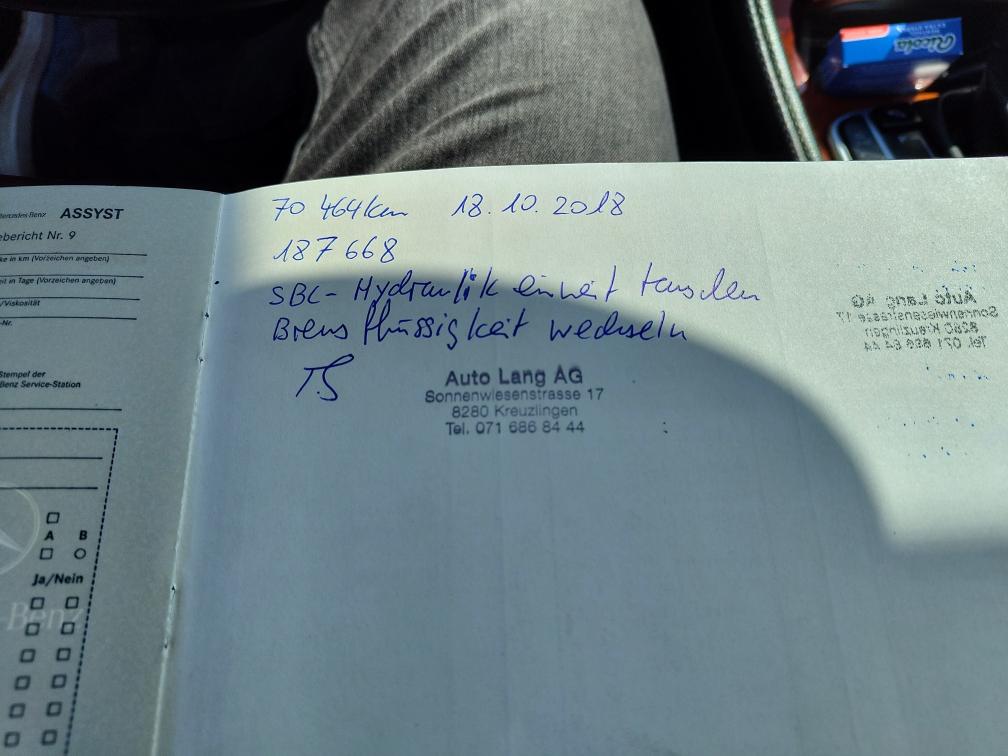 Mercedes-Benz ASSYST
ebericht Nr. 9
ke in km (Vorzeichen angeben)
it in Tage (Vorzeichen angeben)
/Viskosität
-Nr.
Stempel der
Benz Service-Station
A B
Ja/Nein
-Benz
70 464km 18.10.2018
187 668
SBC-Hydraulik einheit tauschen
Bremsflüssigkeit wechseln
TS
Auto Lang AG
Sonnenwiesenstrasse 17
8280 Kreuzlingen
Tel. 071 686 84 44
Auto Lang AG
Sonnenwiesenstrasse 17
8280 Kreuzlingen
Tel. 071 686 84 44
Ricola